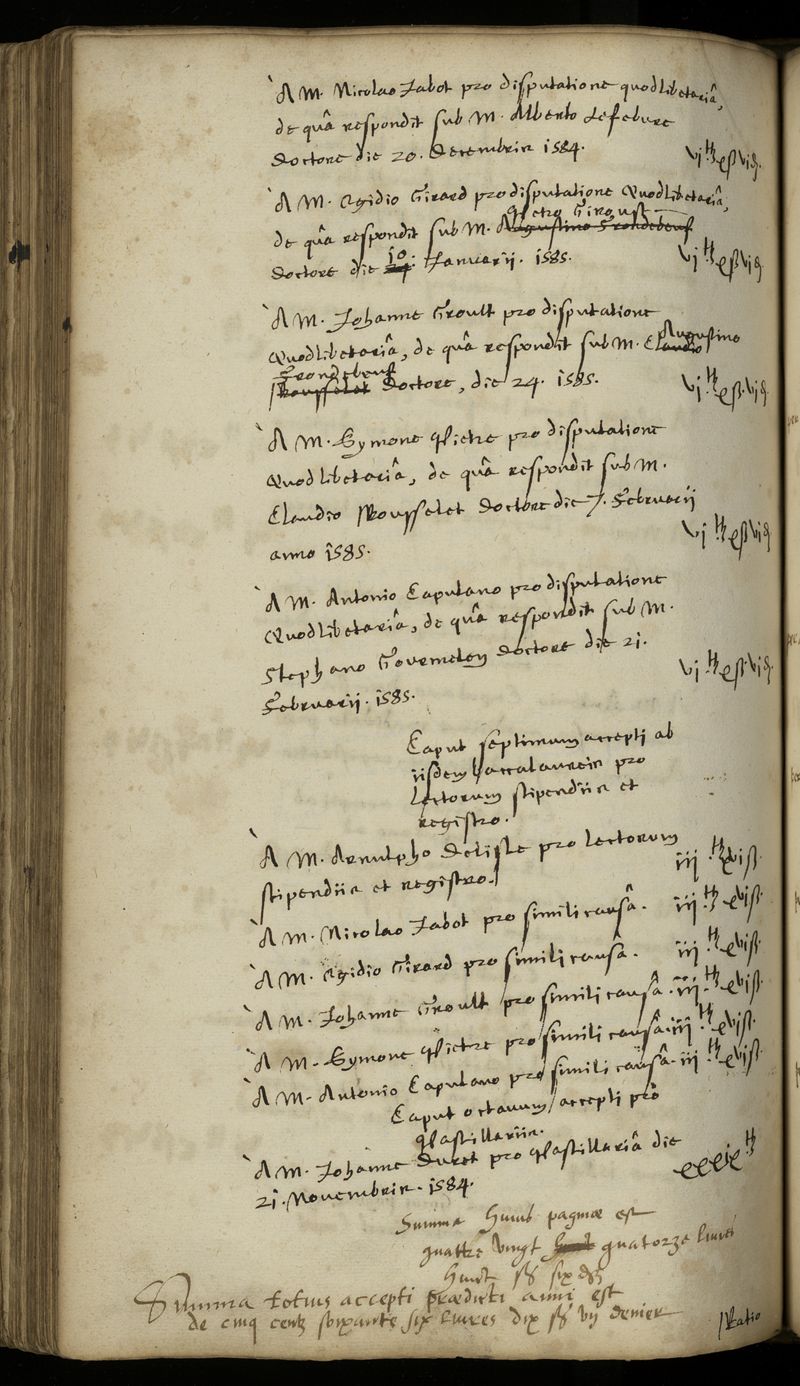 A M. Nicolao Jabot pro disputatione quodlibetariâ,
de quâ respondit sub M. Alberto Lefebvre
doctore die 20. Decembris 1584.
A M. Ægidio Girard pro disputatione Quodlibetariâ,
Pietro Girault
de quâ respondit sub M. Augustino Frondebeuf
10.
doctore die 24. Januarii. 1585.
A M. Johanne Groult pro disputatione
Augustino
Quodlibetariâ, de quâ respondit sub M. Claudio
Frondebeuf
Rousselet doctore, die 24. 1585.
A M. Symone Pietre pro disputatione
Quodlibetariâ, de quâ respondit sub M.
Claudio Rousselet doctore die 7. Februarii
anno 1585.
A M. Antonio Capulano pro disputatione
Quodlibetariâ, de quâ respondit sub M.
Stephano Gourmelen doctore die 21.
Februarii. 1585.
Caput septimum accepti ab
iisdem baccalaureis pro
lectorum stipendiis et
registro.
A M. Arnulpho Delisle pro lectorum
stipendiis et registro.
A M. Nicolao Jabot pro simili causâ.
A M. Ægidio Girard pro simili causâ.
A M. Johanne Groult pro simili causâ.
A M. Symone Pietre pro simili causâ.
A M. Antonio Capulano pro simili causâ.
Caput octavum accepti pro
Pastillariis.
A M. Johanne Duret pro Pastillariâ die
21. Novembris. 1584.
Summa huius paginæ est
quattre vingt quatorze livres
huict ß six
Summa totius accepti prædicti anni est
de cinq centz soixante six livres dix ß vij denier
Ratio